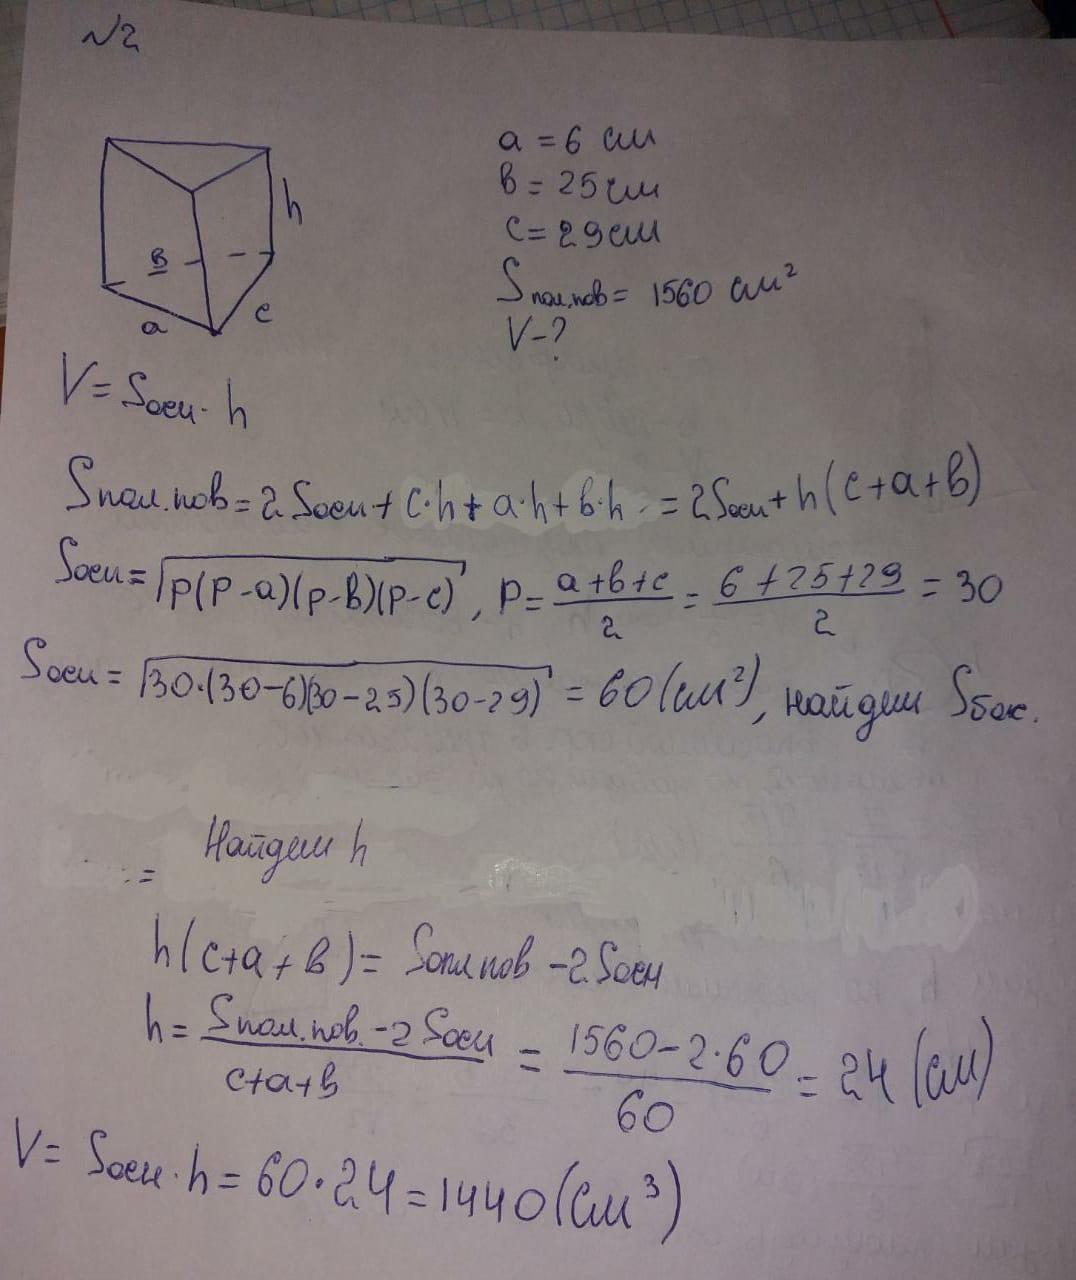 №2
a = 6 см
в = 25 см
с = 29 см
h
в
a
c
Sпол.пов = 1560 см²
V-?
V = Sосн · h
Sпол.пов = 2Sосн + c·h + a·h + в·h = 2Sосн + h(c+a+в)
Sосн = √p(p-a)(p-в)(p-c), p = (a+в+c)/2 = (6+25+29)/2 = 30
Sосн = √30·(30-6)(30-25)(30-29) = 60(см²), найдем Sбок.
Найдем h
=
h(c+a+в) = Sопл.пов - 2Sосн
h = (Sпол.пов. - 2Sосн)/(c+a+в) = (1560-2·60)/60 = 24 (см)
V = Sосн · h = 60·24 = 1440 (см³)